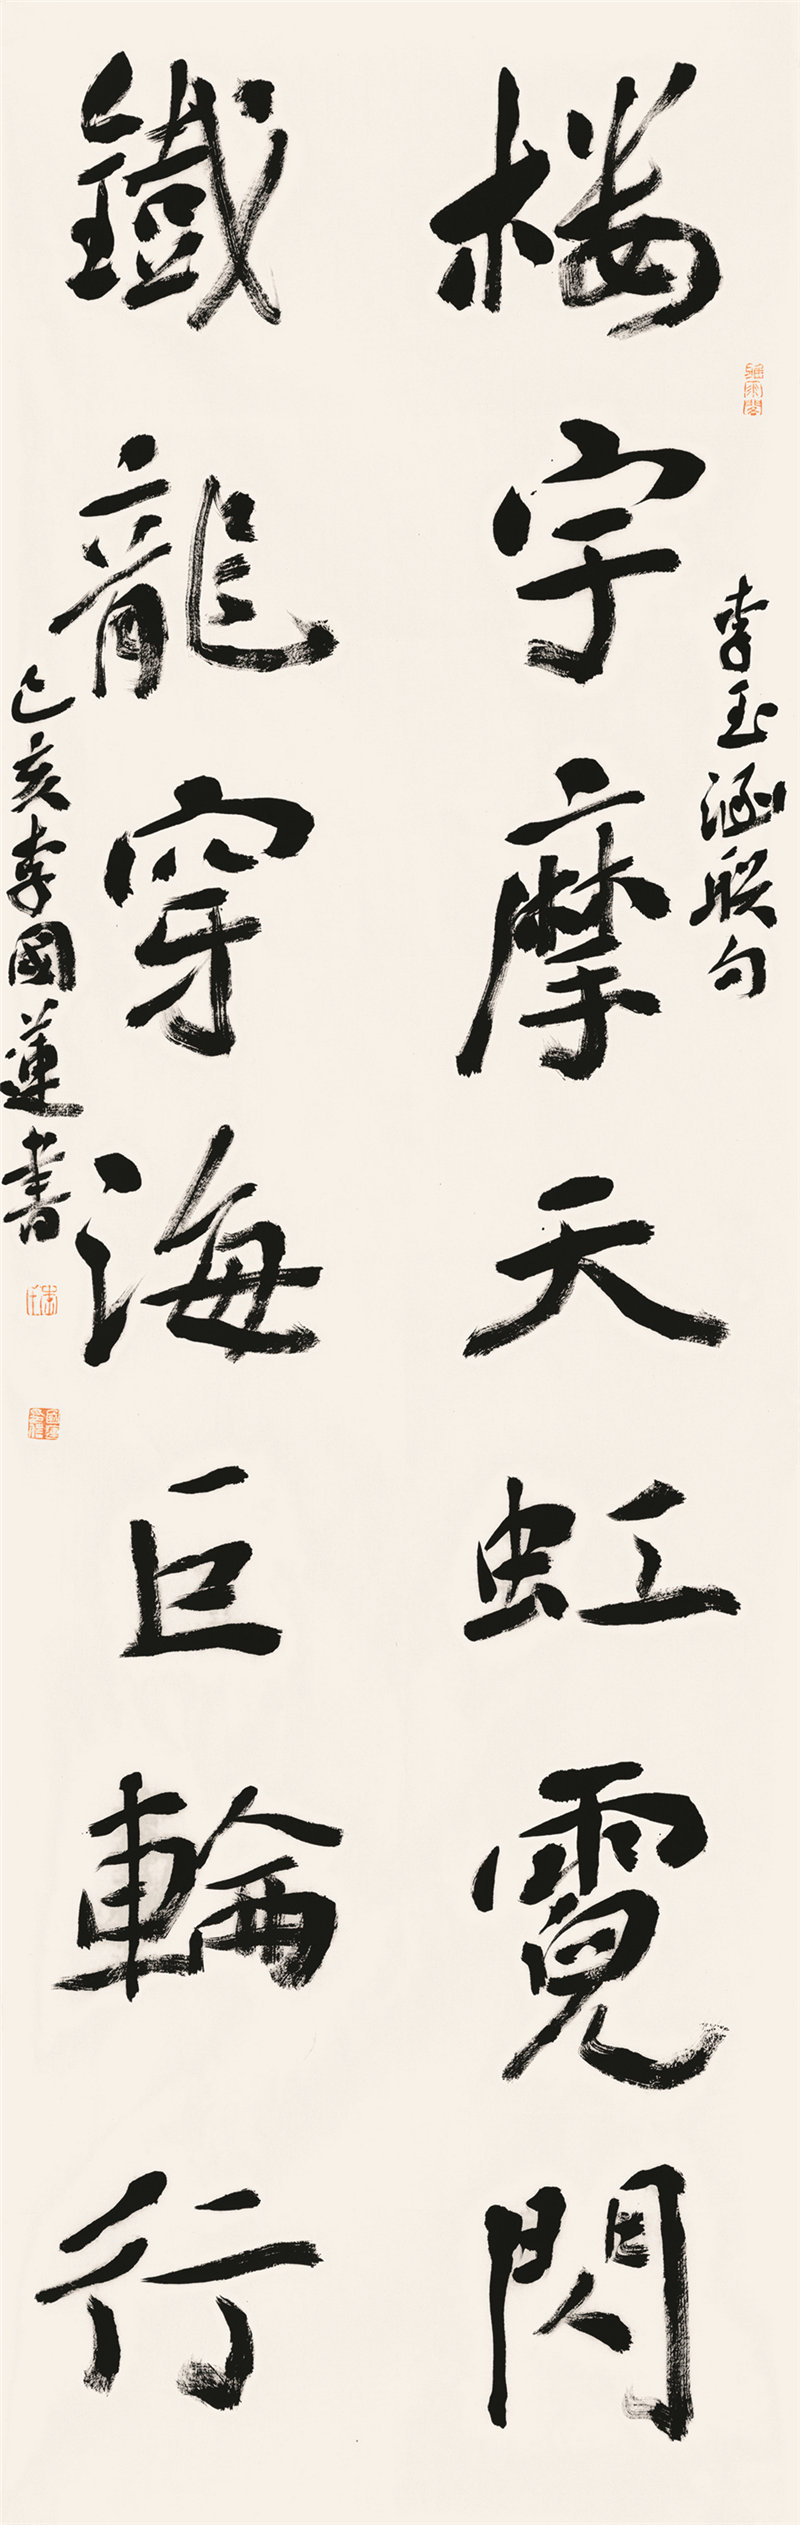 楼宇摩天虹霓閃
李玉涵联句
鐵龍穿海巨輪行
己亥李國蓮書